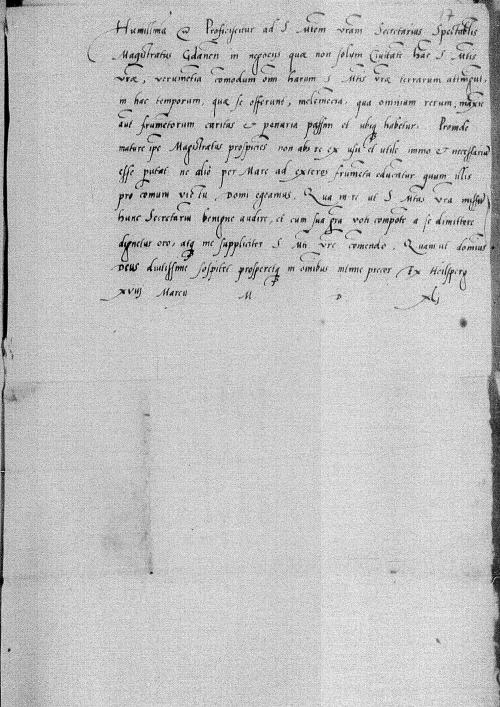 Humillima &c Proficiscitur ad S Mtem vram Secretarius Spectabilis
Magistratus Gdanen in negociis quæ non solum Ciuitatē hāc S Mtis
vræ, verumetiā cōmodum omniū harum S Mtis vræ terrarum attingūt,
in hac temporum, quæ se offerunt, inclementia, qua omnium rerum, maxīe
aūt frumētorum caritas et penuria passim et ubiq habetur. Proinde
mature ipe Magistratus prospiciēs non abs re ex usu et utile immo et necessariū
esse putat, ne aliō per Mare ad exteros frumēta educātur quum illis
pro comuni victu, domi egeamus. Qua in re ut S Mtas vra missū
hunc Secretariū benigne audire, et cum sua gra voti compotē a se dimittere
dignetur oro, atq me suppliciter S Mti vre cōmendo, Quam ut dominus
Deus diutissime sospitē prosperēq in omībus
precor Ex Heilsperg
xviij Marcij M D xlj